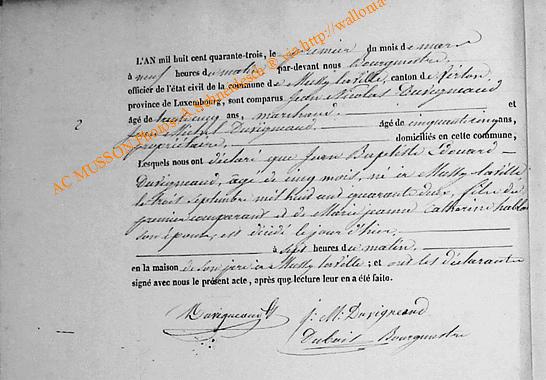 L'AN mil huit cent quarante-trois, le premier du mois de mars
à neuf heures du matin par-devant nous Bourgmestre
officier de l'état civil de la commune de Mussy laville, canton de Virton,
province de Luxembourg, sont comparus Jean Nicolas Duvigneaud
âgé de ans, marchand et
2
Jean Michel Duvigneaud âgé de cinquante cinq ans,
propriétaire, domiciliés en cette commune,
Lesquels nous ont déclaré que Jean Baptiste Edouard
Duvigneaud, âgé de cinq mois, né à Mussy laville
le trois Septembre mil huit cent quarante deux, fils du
premier comparant et de Marie jeanne Catherine
son épouse, est décédé le jour d'hier
à sept heures du matin.
en la maison de son père à Mussy laville; et ont les déclarants
signé avec nous le présent acte, après que lecture leur en a été faite.
Duvigneaud
j. M. Duvigneaud
Bourgmestre
AC MUSSON Photos A Schneidesch ® via http://wallonia